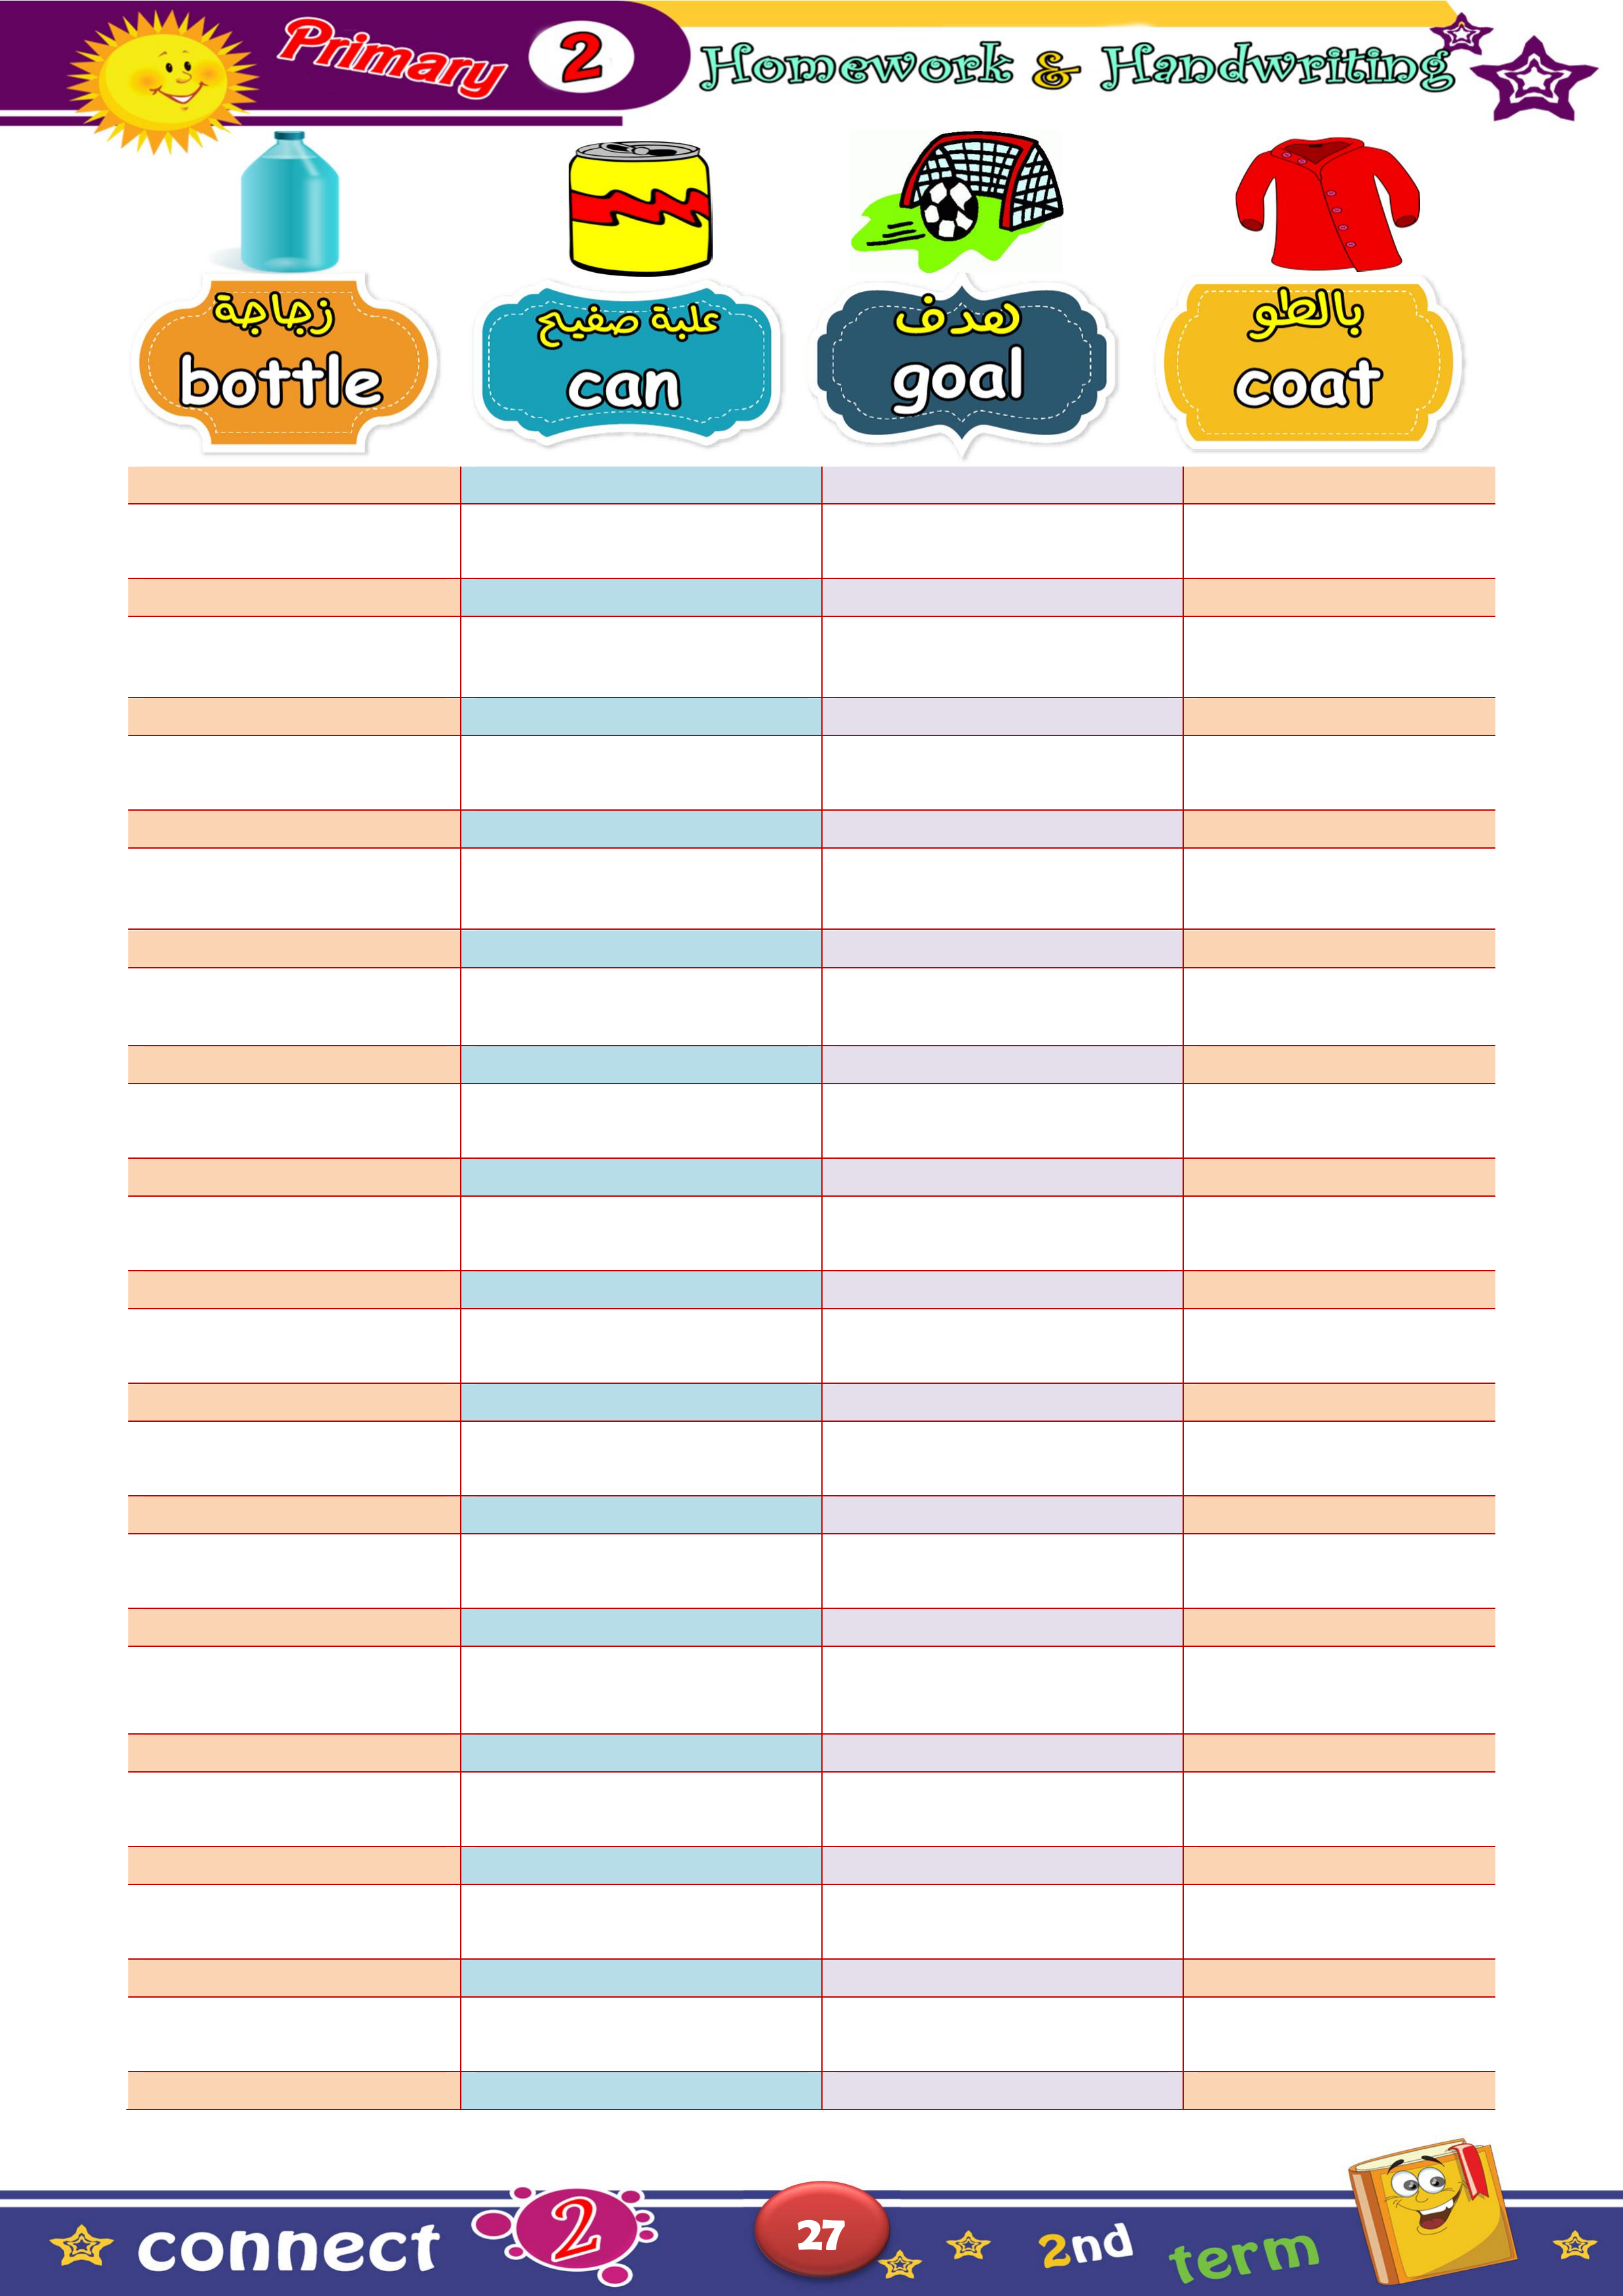 Primary 2 Homework & Handwriting
زجاجة
bottle
علبة صفيح
can
هدف
goal
بالطو
coat
connect 2 27 2nd term